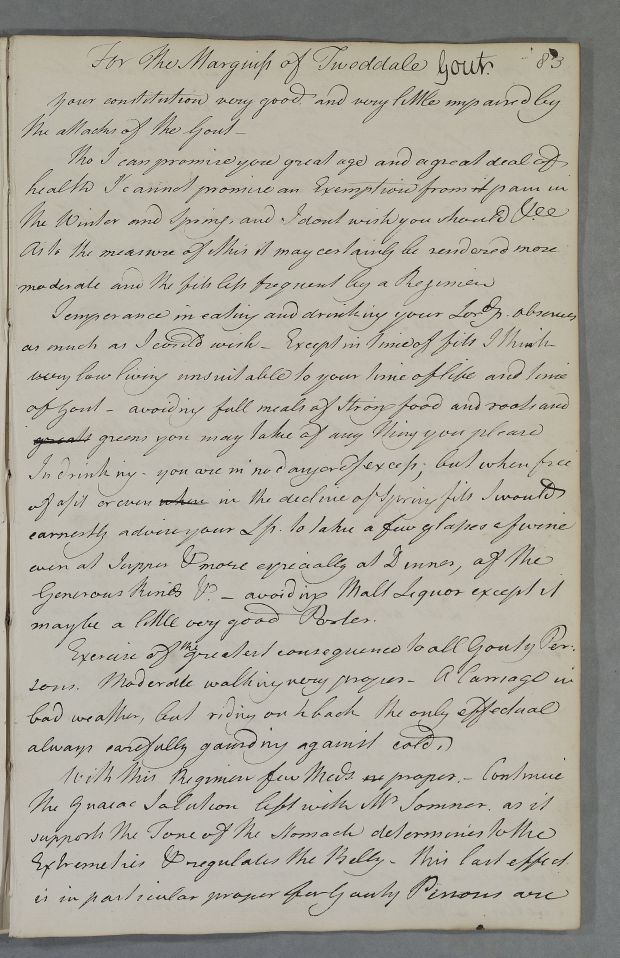 For the Marquiss of Tweddale Gout. 83
your constitution very good and very little impaired by
the attacks of the Gout –
Tho I can promise you great age and a great deal of
health I cannot promise an Exemption from pain in
the Winter and Spring, and I dont wish you should &ce
As to the measure of this it may certainly be rendered more
moderate and the fits less frequent by a Regimen
Temperance in eating and drinking your Lordp. observes
as much as I could wish – Except in time of fits I think
very low living unsuitable to your time of life and time
of Gout – avoiding full meals of strong food and roots and
greens you may take of any thing you please
In drinking – you are in no danger of excess; but when free
of a fit or even in the decline of Spring fits I would
earnestly advise your Lp. to take a few glasses of wine
even at Supper & more especially at Dinner, of the
Generous kinds &c. – avoiding Malt Liquor except it
may be a little very good Porter.
Exercise of the greatest consequence to all Gouty Per-
sons. Moderate walking very proper – A Carriage in
bad weather, but riding on h back the only effectual
always carefully guarding against cold,
With this Regimen few Meds proper. – Continue
the Guaiac Solution left with Mr Somner, as it
supports the Tone of the Stomach determines to the
Extremeties & regulates the Belly – this last effect
is in particular proper for Gouty Persons are